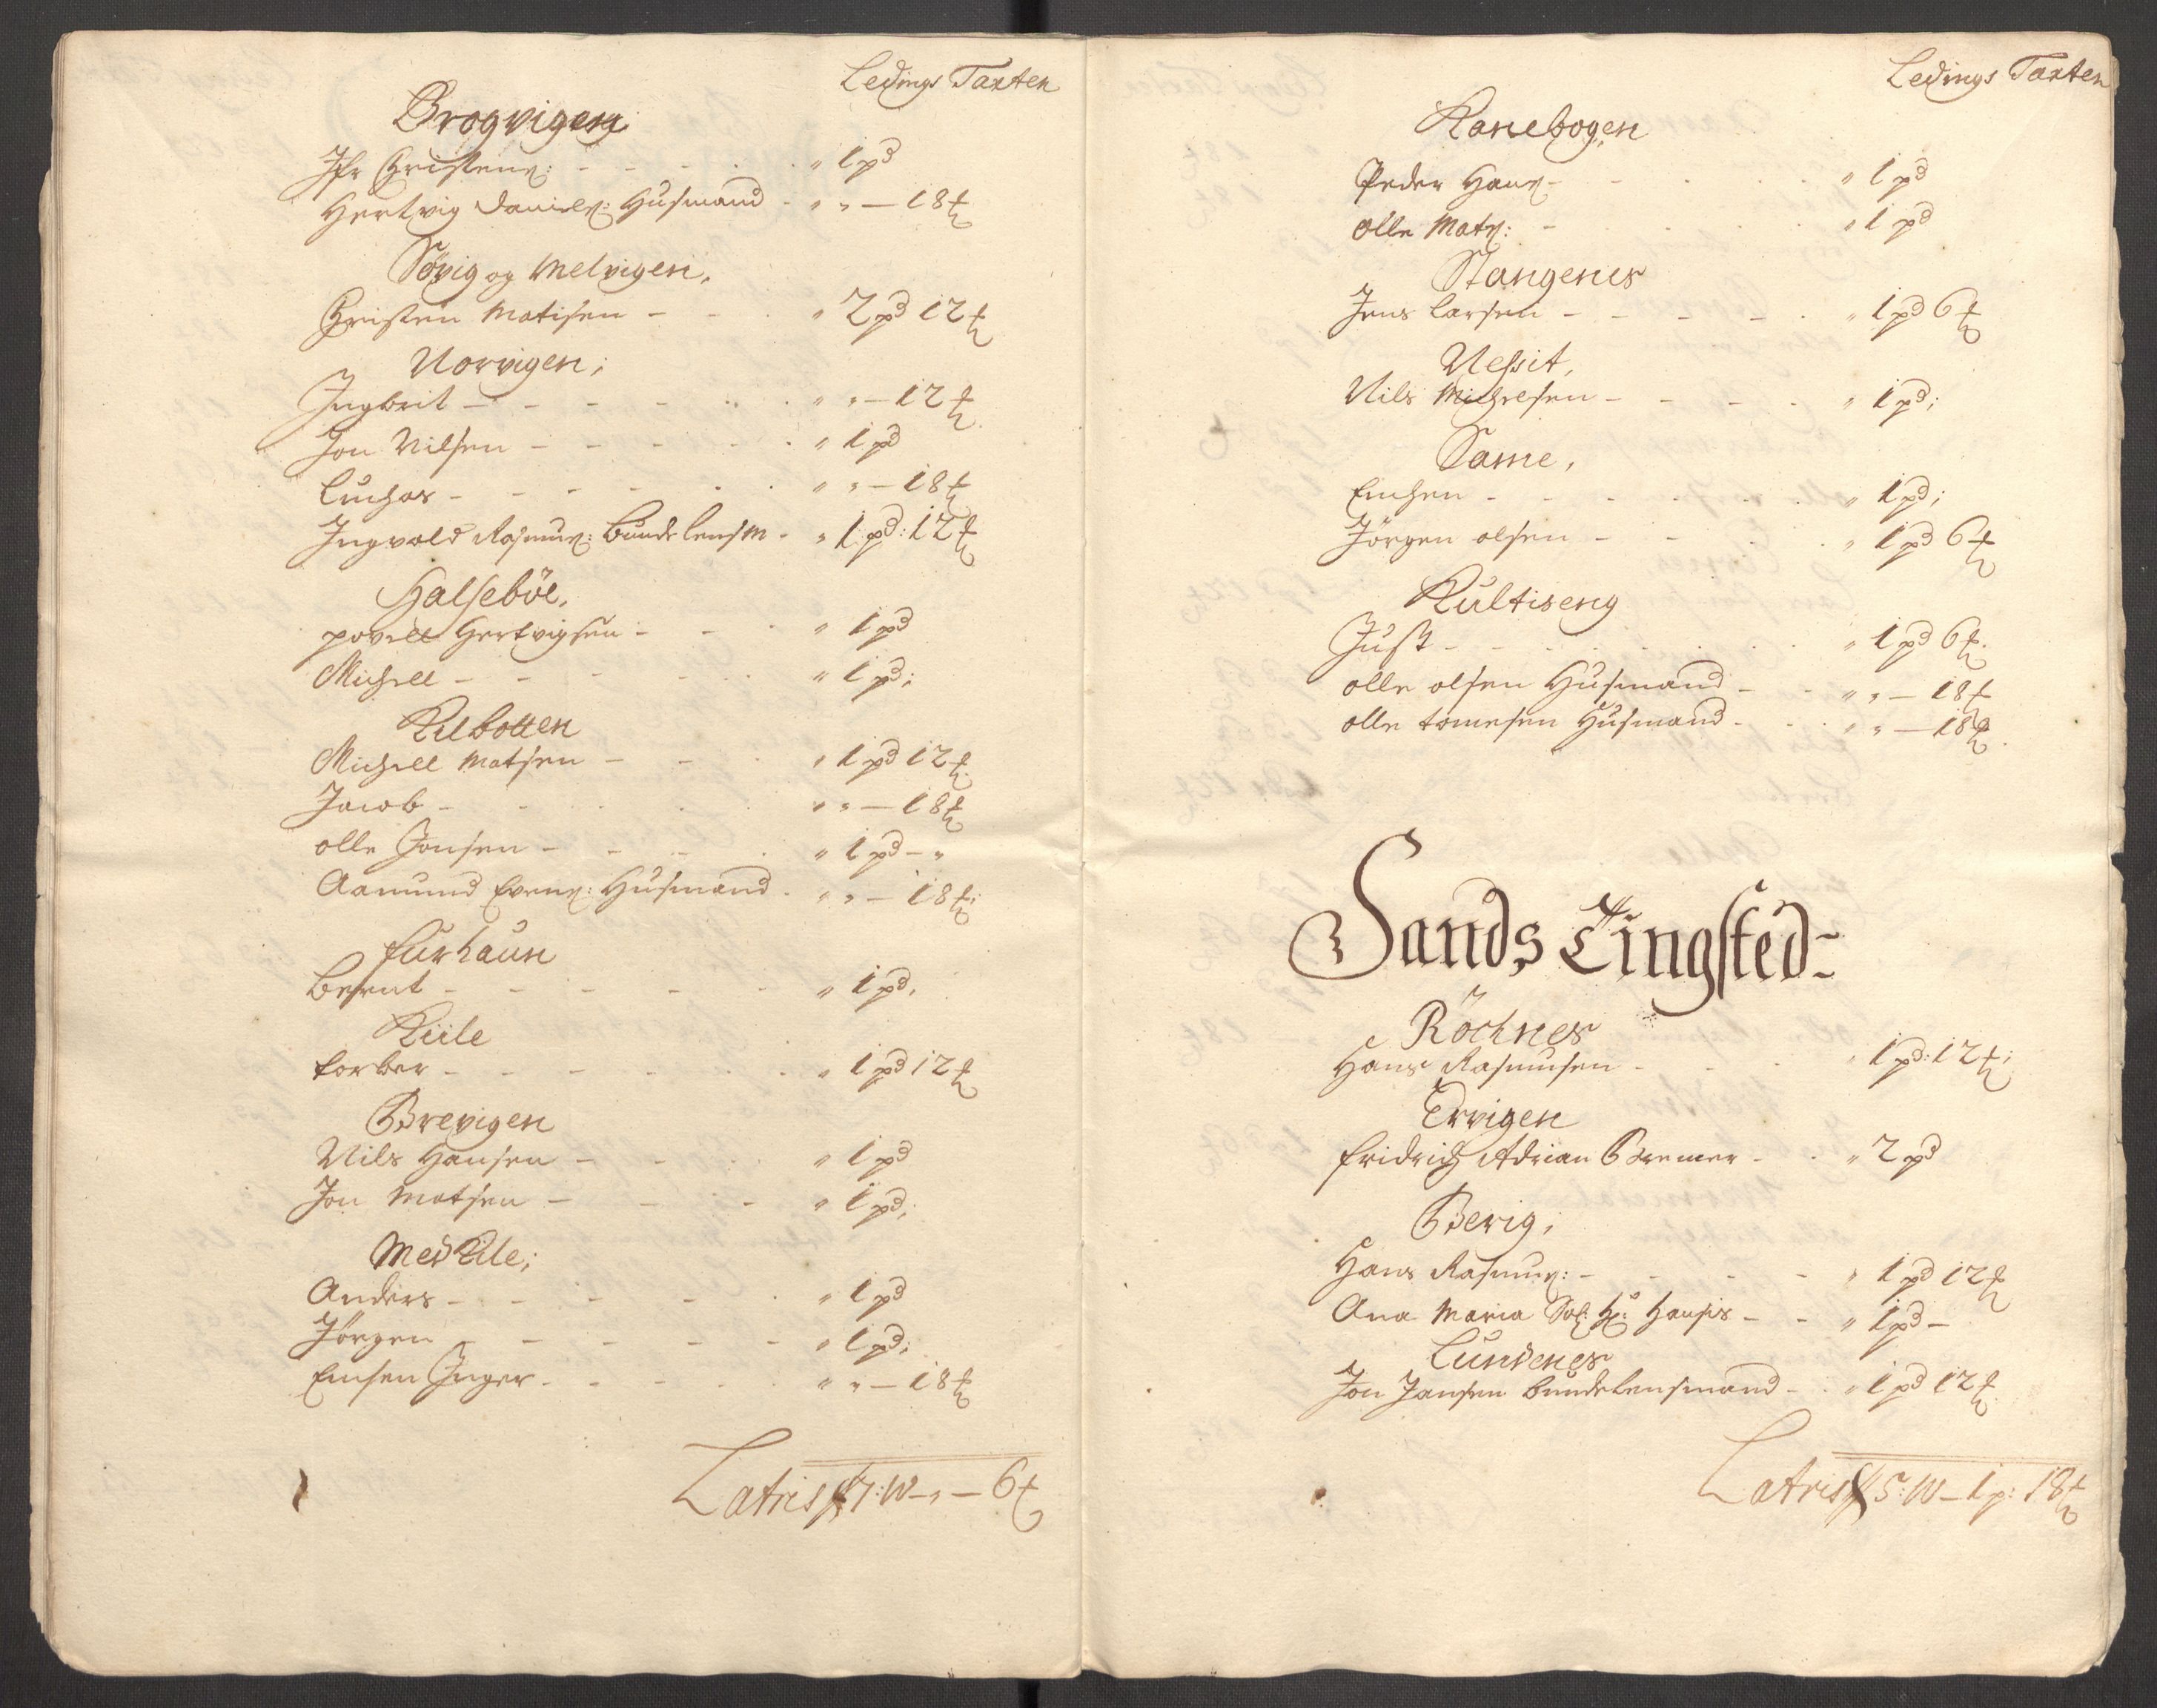 Ledings Taxten
Brogvigen
Jfr Christens: - - - - " 1 pd
Hertvig Daniels: Husmand - " " - 18 ℔
Sövig og Melvigen,
Christen Matisen - - " 2 pd 12 ℔
Norvigen;
Ingbrit - - - - - " " - 12 ℔
Jon Nilsen - - - - - " 1 pd
Luchas - - - - - " " - 18 ℔
Ingvald Rasmus: Bunde Lensm - " 1 pd: 12 ℔
Halseböe,
povell Hertvigsen - - - " 1 pd
Michell - - - - - " 1 pd;
Kilbotten
Michell Matsen - - - " 1 pd 12 ℔
Jacob - - - - " " - 18 ℔
olle Jonsen - - - - " 1 pd - "
Aamund Evens: Husmand - " " - 18 ℔;
furhaun
Bernt - - - - - " 1 pd,
Kiile
torber - - - - - - " 1 pd 12 ℔
Brevigen
Nils Hansen - - - " 1 pd
Jon Matsen - - - " 1 pd;
Med Kile;
Anders - - - - - " 1 pd
Jörgen - - - - - " 1 pd;
Encken Inger - - - - " " - 18 ℔
Latris 7: W - " - 6 ℔
Ledings Taxten
Kanebogen
Peder Hans - - - - " 1 pd
olle Mats: - - - - " 1 pd
Stangenes
Jens Larsen - - - - - " 1 pd 6 ℔
Nessit,
Nils Michelsen - - - - " 1 pd;
Same,
Enchen - - - - - - " 1 pd;
Jörgen olsen - - - - " 1 pd 6 ℔
Kultiseng
Just - - - - - - " 1 pd 6 ℔
olle olsen Husmand - - " " - 18 ℔
olle tomesen Husmand - - " " - 18 ℔
Sands Tingsted
Röchnes
Hans Rasmusen - - - " 1 pd: 12 ℔;
Ervigen
fridrich Adrian Bremer - - " 2 pd
Berig;
Hans Rasmus: - - - - " 1 pd 12 ℔
Ana Maria Sal: Hr: Hansis - - " 1 pd -
Lundenes
Jon Jansen Bundelensmand - - " 1 pd 12 ℔
Latris 5: W - 1 p: 18 ℔